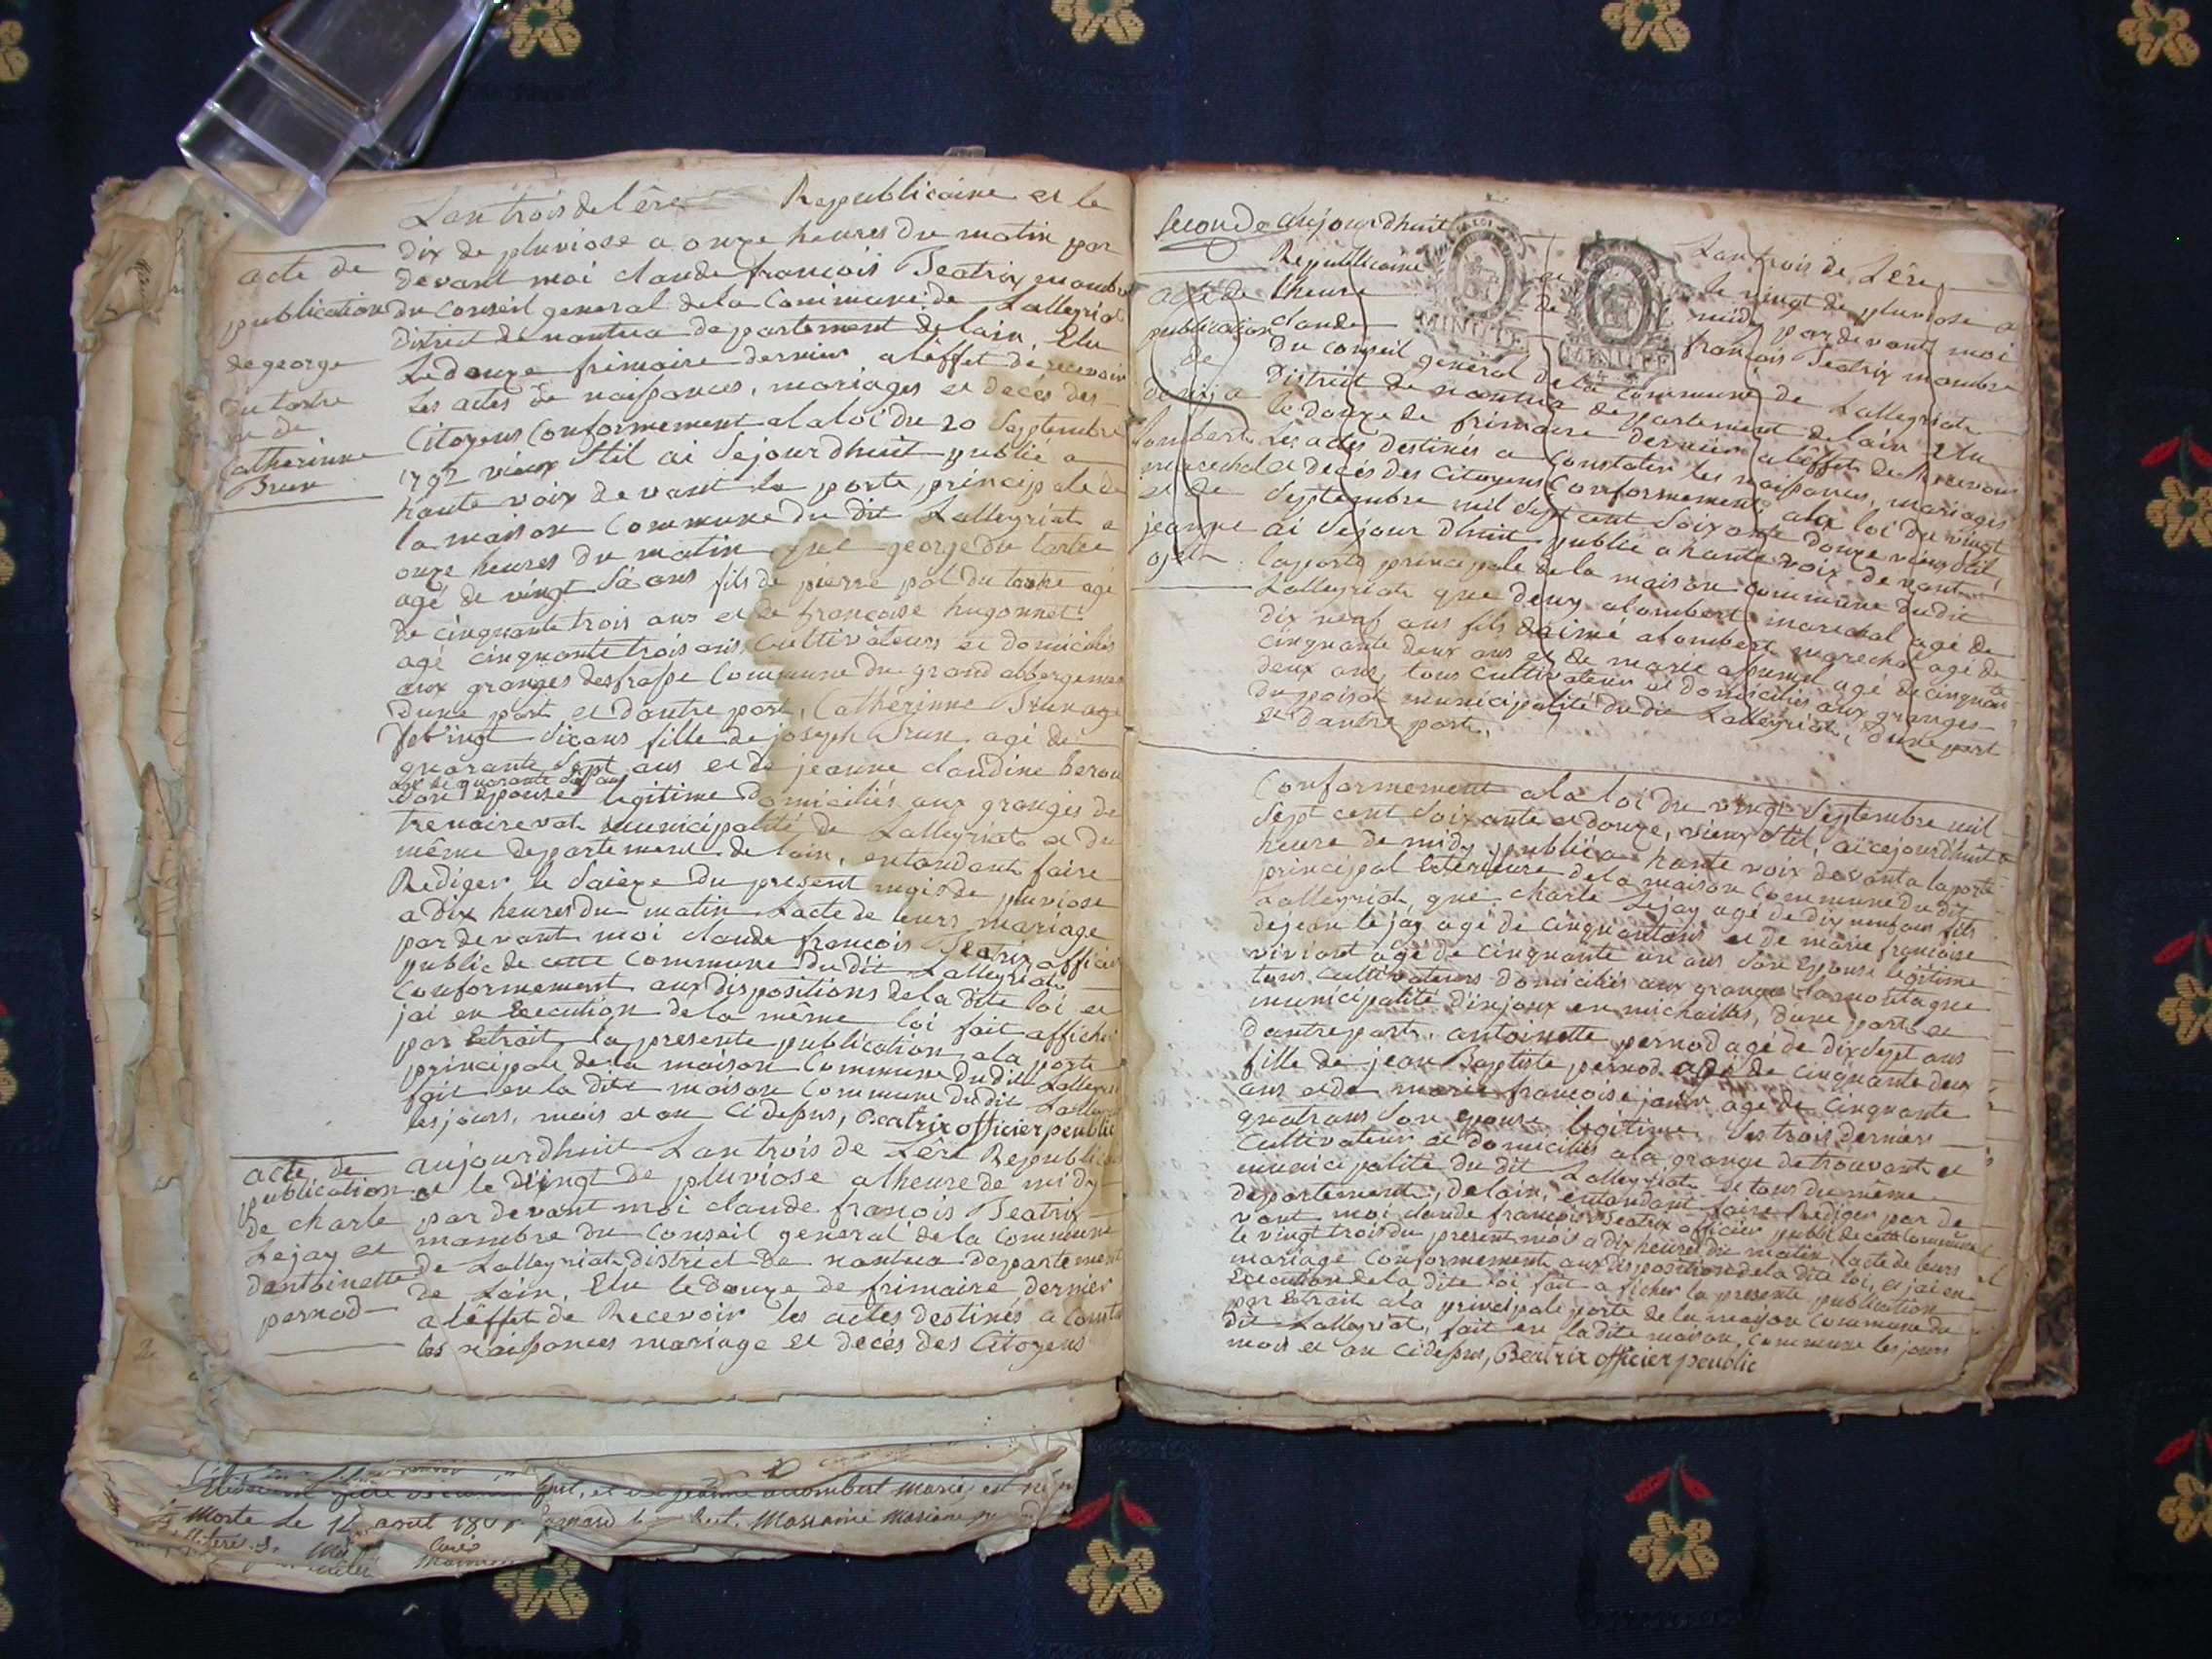 Lan trois de lêre Republicaine et le
dix de pluviose a onze heures du matin par
devant moi claude françois Beatrix mambre
du Conseil general de la Commune de Lalleyriat
district de nantua departement de lain, Elu
Le douze frimaire dernier a lêffet de recevoir
les actes de naissances, mariages et decés des
Citoyens Conformement a la loi du 20 Septembre
1792 vieux Stil ai Sejourdhuit publié a
haute voix devant la porte principale de
la maison Commune du dit Lalleyriat a
onze heures du matin que george du tartre
agé de vingt Six ans fils de pierre pol du tartre agé
de cinquante trois ans et de françoise hugonnet
agé cinquante trois ans Cultivateurs et domiciliés
aux granges desfrasse Commune du grand abbergement
dune part et dautre part, Catherinne Brun agé
de vingt Six ans fille de joseph Brun agé de
quarante Sept ans et de jeanne claudine
agé de quarante Six ans
Son epouse legitime domiciliés aux granges de
trenoirevat municipalité de Lalleyriat et du
même departement de lain, entandant faire
Rediger le Saieze du present mois de pluviose
a dix heures du matin Lacte de leurs mariage
par devant moi claude françois Beatrix officier
public de cette Commune du dit Lalleyriat
Conformement aux dispositions de la dite loi et
jai en Execution de la même loi fait afficher
par Extrait la presente publication a la porte
principale de la maison Commune du dit Lalleyriat
fait en la dite maison Commune du dit Lalleyriat
les jours, mois et an Cidessus, Beatrix officier peublic
acte de
publication
de george
du tartre
et de
Catherinne
Brun
aujourdhuit Lan trois de Lêre Republicaine
et le vingt de pluviose a lheure de midy
par devant moi claude françois Beatrix
mambre du Conseil general de la Commune
de Lalleyriat, district de nantua departement
de Lain, Elu le douze de frimaire dernier
a lêffet de Recevoir les actes destinés a
les naissances mariage et decés des Citoyens
acte de
publication
de charle
Lejay et
dantoinette
pernod
Morte le 14 aout
Seconde aujourdhuit Lan trois de Lêre
Republicaine et le vingt de pluviose a
lheure de midy par devant moi
claude françois Beatrix mambre
du Conseil general de la Commune de Lalleyriat
District de nantua departement de lain Elu
le douze de frimaire dernier a lêffet de Recevoir
les actes destinés a Constater les naissances, mariages
et decés des Citoyens Conformement a la loi du vingt
Septembre mil Sept cent Soixante douze vieux Stil,
ai Sejourdhuit publié a haute voix devant
la porte principale de la maison Commune du dit
Lalleyriat que denys alombert marechal agé de
dix neuf ans fils daimé alombert marechal agé de
cinquante deux ans et de marie agé de cinquante
deux ans, tous Cultivateurs et domiciliés aux granges
du poisat municipalité du dit Lalleyriat, dune part
et dautre part,
acte de
publication
de
denis a
lombert
marechal
et de
jeanne
Conformement a la loi du vingt Septembre mil
Sept cent Soixante et douze, vieux Stil, ai cejourdhuit a
heure de midy publié a haute voix devant la porte
principal exterieure de la maison Commune du dit
Lalleyriat que charle Lejay agé de dix neuf ans fils
de jean Lejay agé de cinquantans et de marie françoise
viviant agé de cinquante un ans Son epouse legitime
tous Cultivateurs domiciliés aux granges la montagne
municipalité dinjoux en michailles, dune part et
dautre part, antoinette pernod agé de dix Sept ans
fille de jean Baptiste pernod agé de cinquante deux
ans et de marie françoise agé de cinquante
quatrans Son epouse legitime, les trois derniers
Cultivateur et domiciliés a la grange de trouvant et
municipalité du dit Lalleyriat et tous du même
departement, de lain, entandant faire Rediger par de
vant moi claude françois Beatrix officier public de cette Commune
le vingt trois du present mois a dix heures du matin lacte de leurs
mariage Conformement aux dispositions de la dite loi, et jai en
Execution de la dite loi fait aficher la presente publication
par Extrait a la principale porte de la maison Commune du
dit Lalleyriat, fait en la dite maison Commune les jours
mois et an Cidessus, Beatrix officier peublic
MINUTE
MINUTE